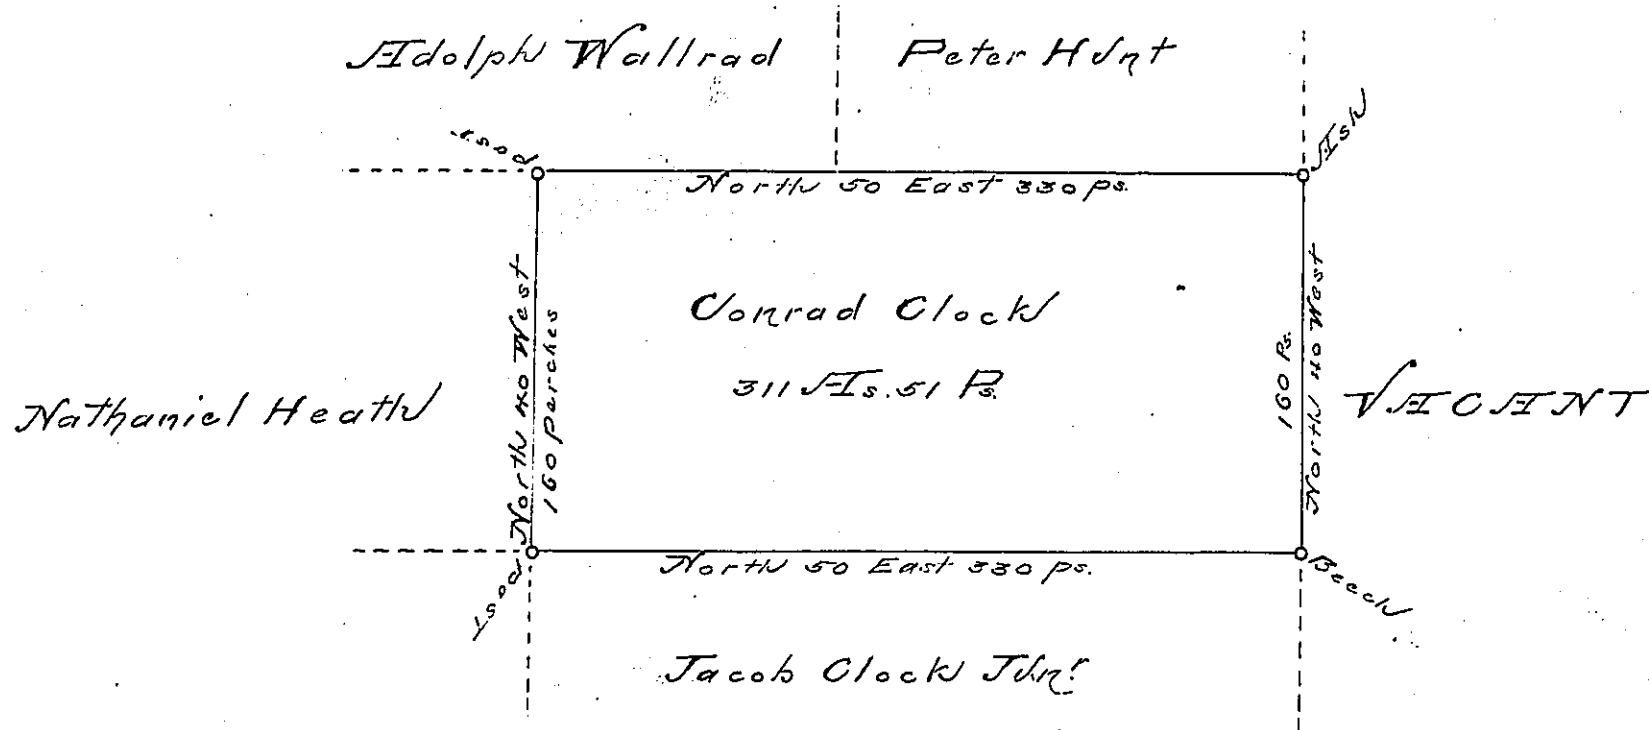 Adolph Wallrad
Peter Hunt
Post
Ash
North 50 East 330 ps.
North 40 West
160 Perches
Conrad Clock
311 As. 51 Ps.
160 Ps.
North 40 West
Nathaniel Heath
VACANT
Post
North 50 East 330 ps.
Beech
Jacob Clock Junr.